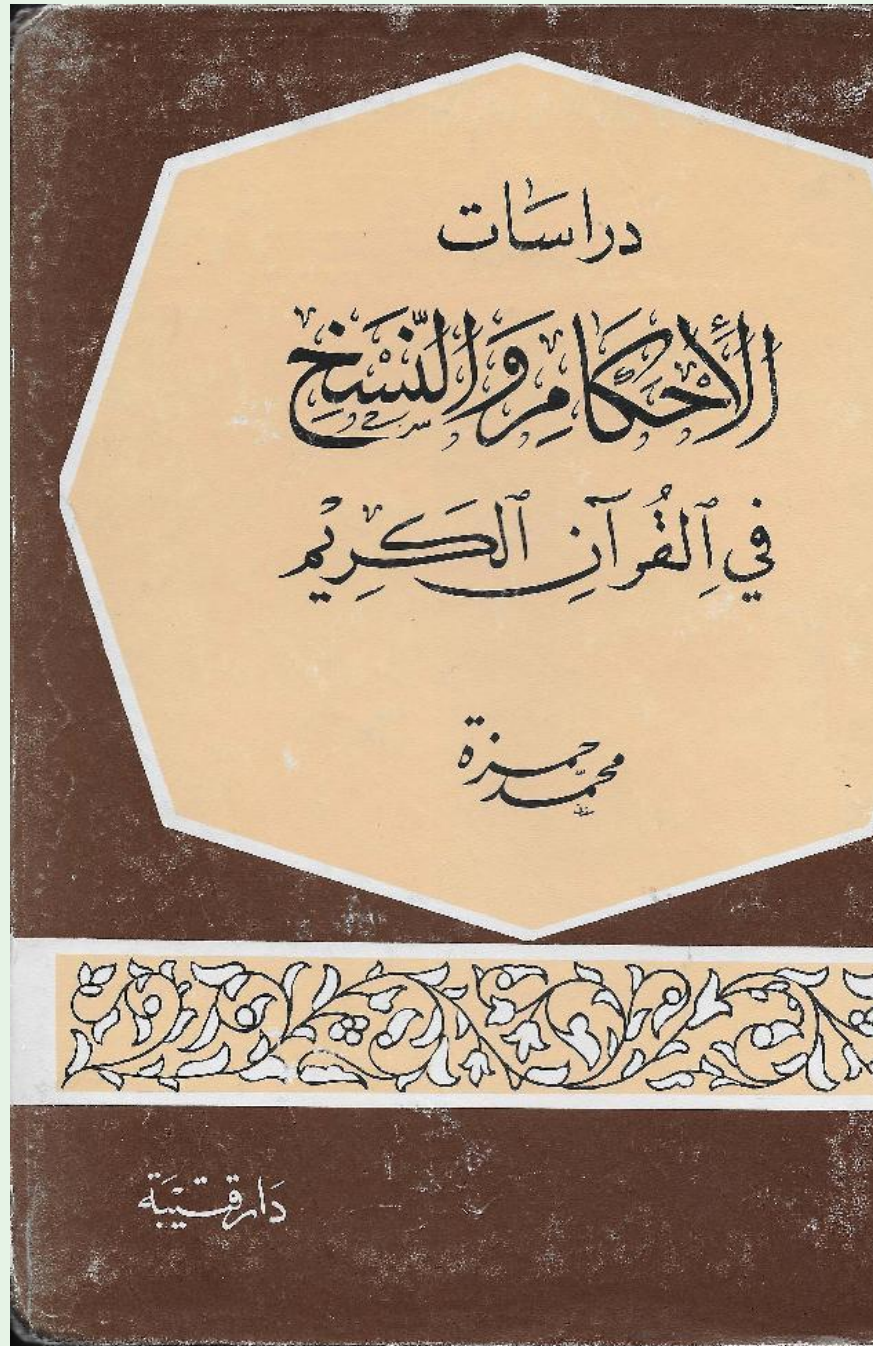 دراسات
الأحكام والنسخ
في القرآن الكريم
محمد حمزة
دار قتيبة